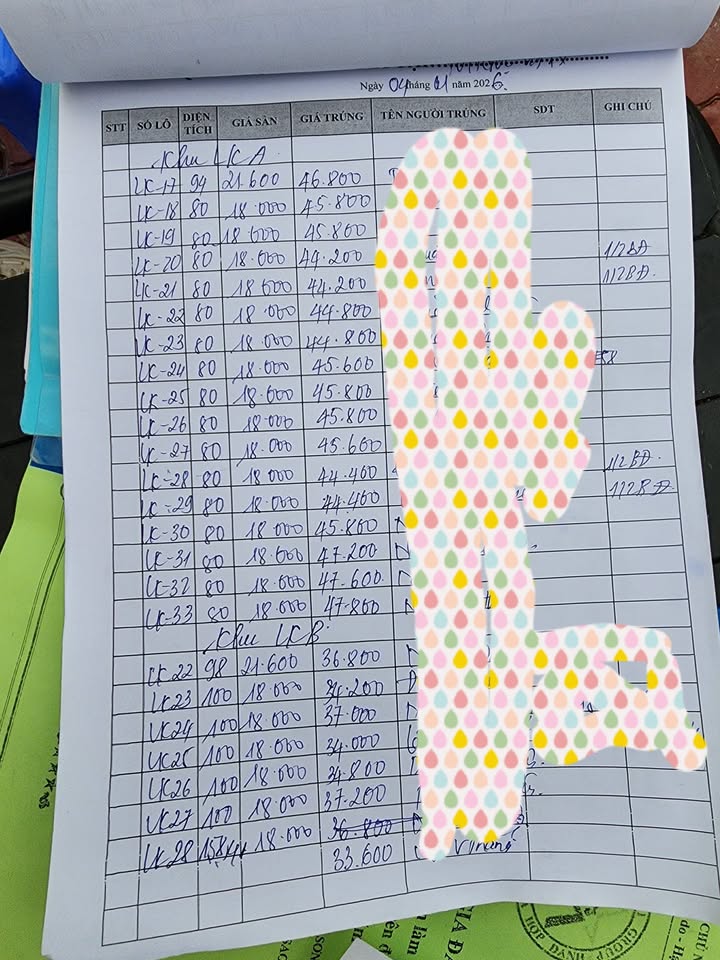 Ngày 04 tháng 01 năm 2026.
STT SỐ LÔ DIỆN TÍCH GIÁ SÀN GIÁ TRÚNG TÊN NGƯỜI TRÚNG SĐT GHI CHÚ
Khu LKA
LK-17 94 21.600 46.800
LK-18 80 18.000 45.800
LK-19 80 18.000 45.800
LK-20 80 18.000 44.200 1/2BĐ
LK-21 80 18.000 44.200 1/2BĐ.
LK-22 80 18.000 44.800
LK-23 80 18.000 44.800
LK-24 80 18.000 45.600
LK-25 80 18.000 45.800
LK-26 80 18.000 45.800
LK-27 80 18.000 45.600
LK-28 80 18.000 44.400 1/2BĐ.
LK-29 80 18.000 44.400 1/2BĐ.
LK-30 80 18.000 45.800
LK-31 80 18.000 47.200
LK-32 80 18.000 47.600
LK-33 80 18.000 47.800
Khu LKB
LK22 98 21.600 36.800
LK23 100 18.000 34.200
LK24 100 18.000 37.000
LK25 100 18.000 34.000
LK26 100 18.000 34.800
LK27 100 18.000 37.200
LK28 18.000 36.800
33.600